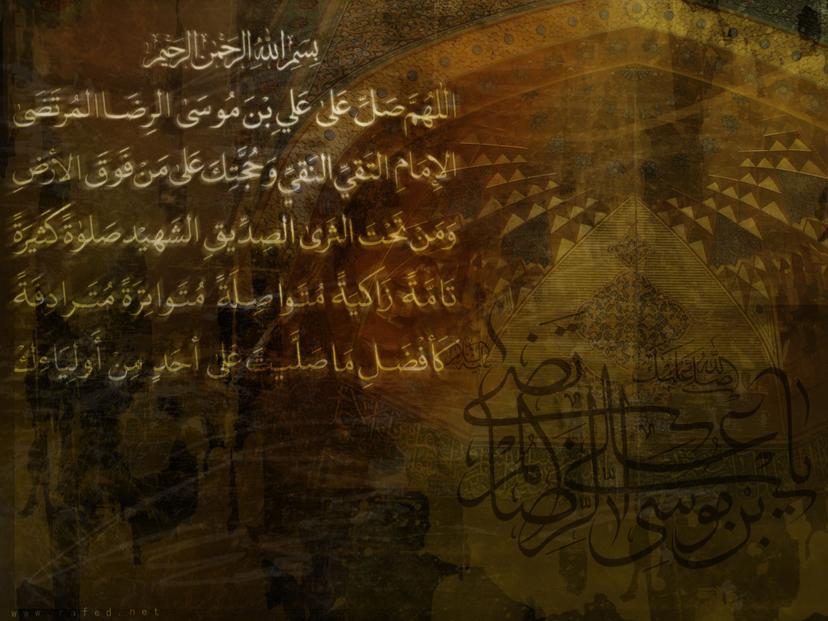 بِسْمِ اللهِ الرَّحْمٰنِ الرَّحِيْمِ
اللّٰهُمَّ صَلِّ عَلىٰ عَلي بِنْ مُوسَىٰ الرِضَا المُرتَضَىٰ
الإمامِ التَقيِّ النَقيِّ وَحُجَّتِكَ عَلىٰ مَنْ فَوقَ الأرْضِ
وَمَن تَحْتَ الثَرىٰ الصِدِّيقِ الشَهيْد صَلوٰةً كَثيْرَةً
تَامَّةً زَاكيةً مُتَواصِلَةً مُتَواتِرَةً مُتَرادِفَةً
كَأفْضَلِ مَا صَلَّيتَ عَلىٰ أحَدٍ مِنْ أَولِيَاءِكْ
صلى الله عليك
يا علي بن موسى الرضا المرتضى
www.rafed.net